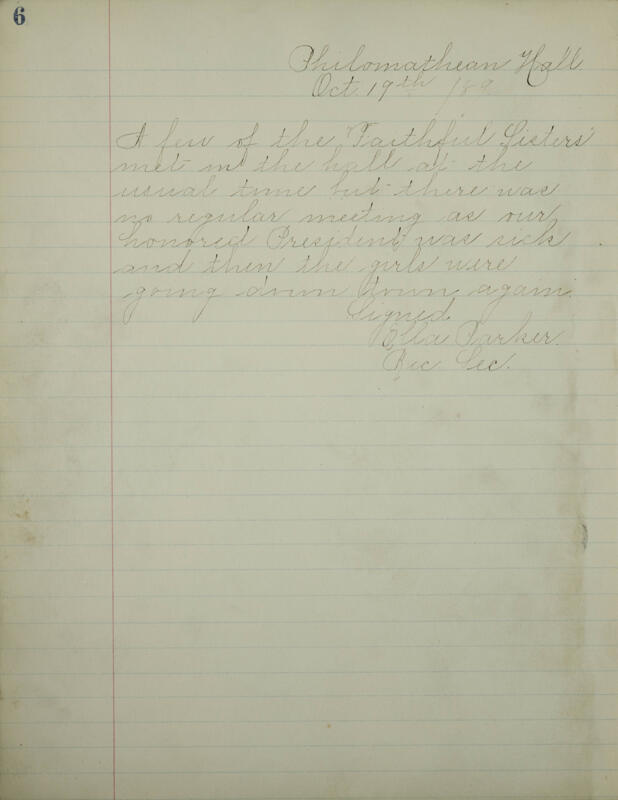 6
Philomathean Hall
Oct. 19th /89
A few of the "Faithful Sisters"
met in the hall at the
usual time but there was
no regular meeting as our
honored President was sick
and then the girls were
going down town again.
Signed
Ella Parker.
Rec. Sec.